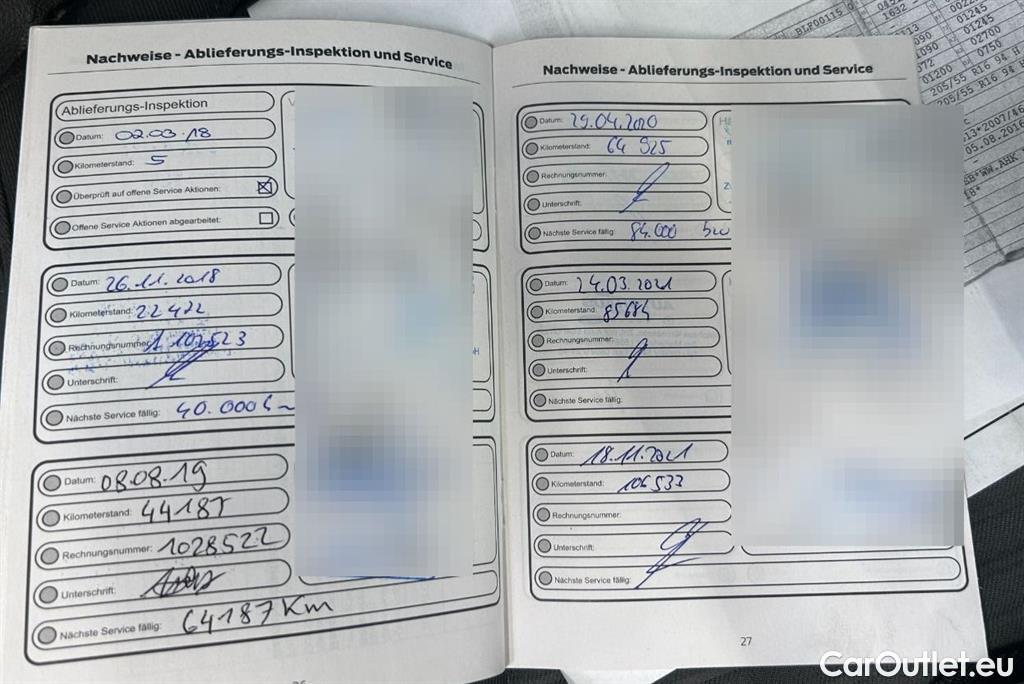 Nachweise - Ablieferungs-Inspektion und Service
Ablieferungs-Inspektion
Datum: 02.03.18
Kilometerstand: 5
Überprüft auf offene Service Aktionen:
Offene Service Aktionen abgearbeitet:
Datum: 26.11.2018
Kilometerstand: 22422
Rechnungsnummer:
Unterschrift:
Nächste Service fällig: 40.000
Datum: 08.08.19
Kilometerstand: 44187
Rechnungsnummer: 1028522
Unterschrift:
Nächste Service fällig: 64187 Km
Nachweise - Ablieferungs-Inspektion und Service
Datum: 29.04.2020
Kilometerstand: 64 925
Rechnungsnummer:
Unterschrift:
Nächste Service fällig: 84.000
Datum: 24.03.2021
Kilometerstand: 85684
Rechnungsnummer:
Unterschrift:
Nächste Service fällig:
Datum: 18.11.2021
Kilometerstand: 106533
Rechnungsnummer:
Unterschrift:
Nächste Service fällig:
27
BLF00115 0
1632 -
01245
01245
02700
01200 0750
205/55 R16 94 H
205/55 R16 94 H
05.08.2016
CarOutlet.eu